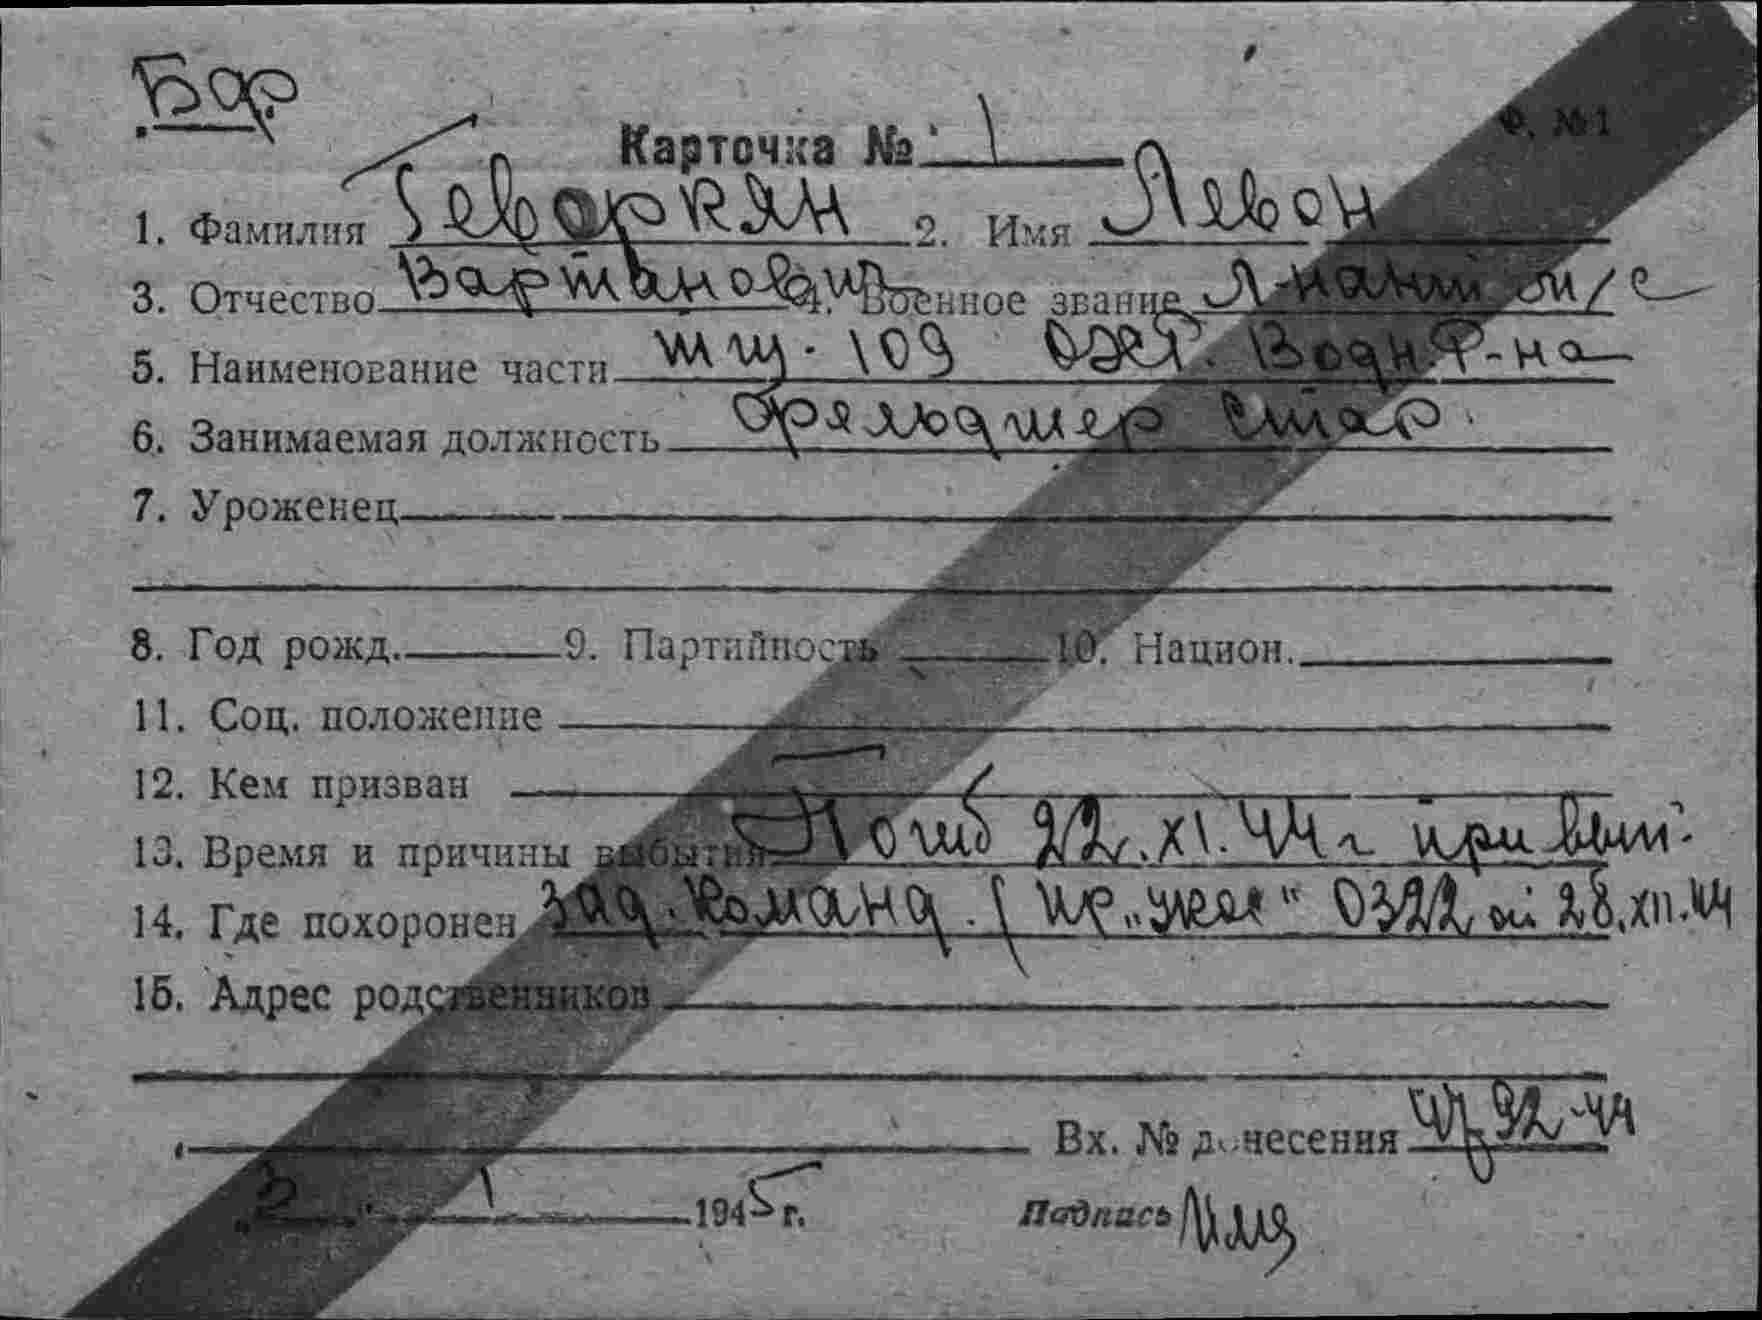 Бар
Ф. №1
Карточка № 1
1. Фамилия Геворкян 2. Имя Левон
3. Отчество Вартанович 4. Военное звание Л-нант м/с
5. Наименование части тщ. 109 Водн. р-на
6. Занимаемая должность Фельдшер стар.
7. Уроженец
8. Год рожд. 9. Партийность 10. Национ.
11. Соц. положение
12. Кем призван
13. Время и причины выбытия Погиб 22.XI.44 г при вып.
14. Где похоронен зад. команд. (пр. 0322 от 28.XII.44
15. Адрес родственников
Вх. № донесения 92-44
2 1 1945 г. Подпись